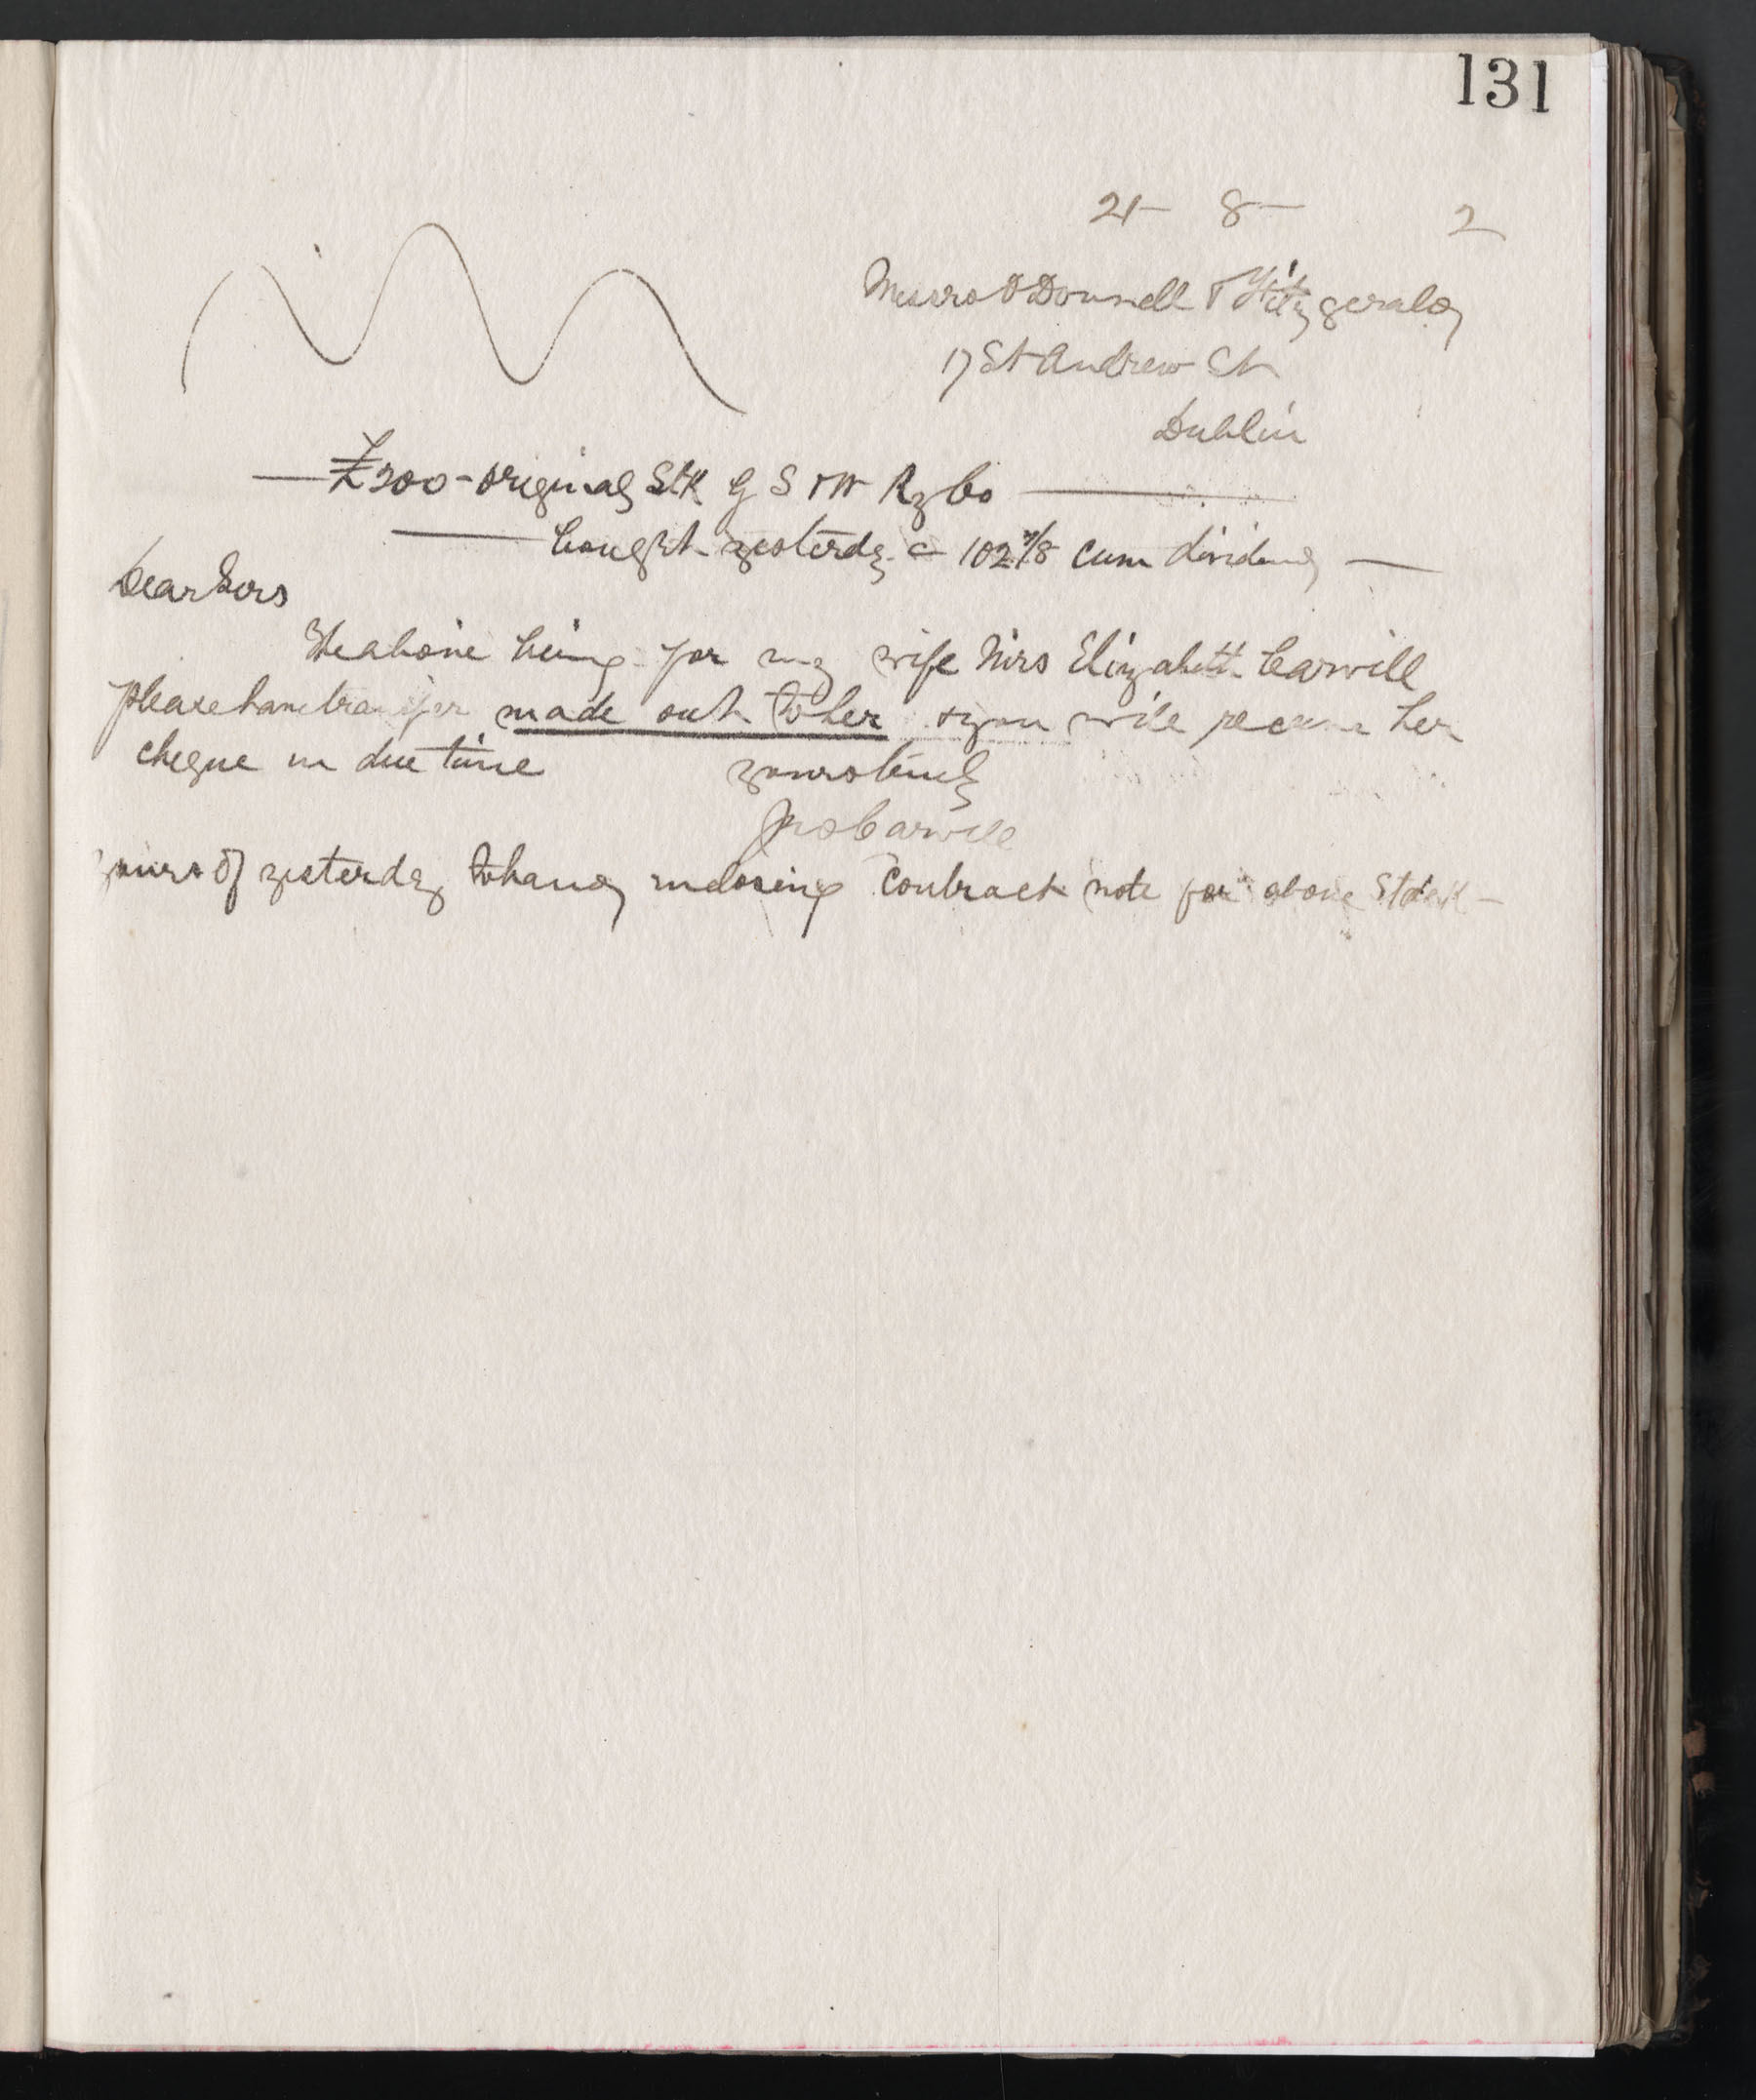 131
21- 8- 2
Messrs O'Donnell & Fitzgerald
17 St Andrew St
Dublin
£200- original Stk G S & W Ry Co
bought yesterdy @ 102 7/8 cum dividend
Dear Sirs
The above being for my wife Mrs Elizabeth Carvill
please have transfer made out to her & you will receive her
cheque in due time yours truly
Jno Carvill
yours of yesterday to hand enclosing contract note for above Stock -